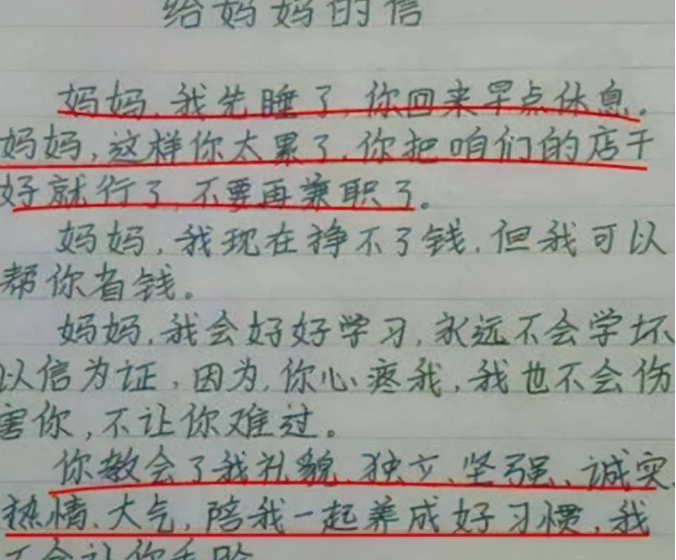 给妈妈的信
妈妈,我先睡了,你回来早点休息。
妈妈,这样你太累了,你把咱们的店干
好就行了,不要再兼职了。
妈妈,我现在挣不了钱,但我可以
帮你省钱。
妈妈,我会好好学习,永远不会学坏
以信为证,因为,你心疼我,我也不会伤
害你,不让你难过。
你教会了我礼貌、独立、坚强、诚实、
热情、大气,陪我一起养成好习惯,我
不会让你丢脸